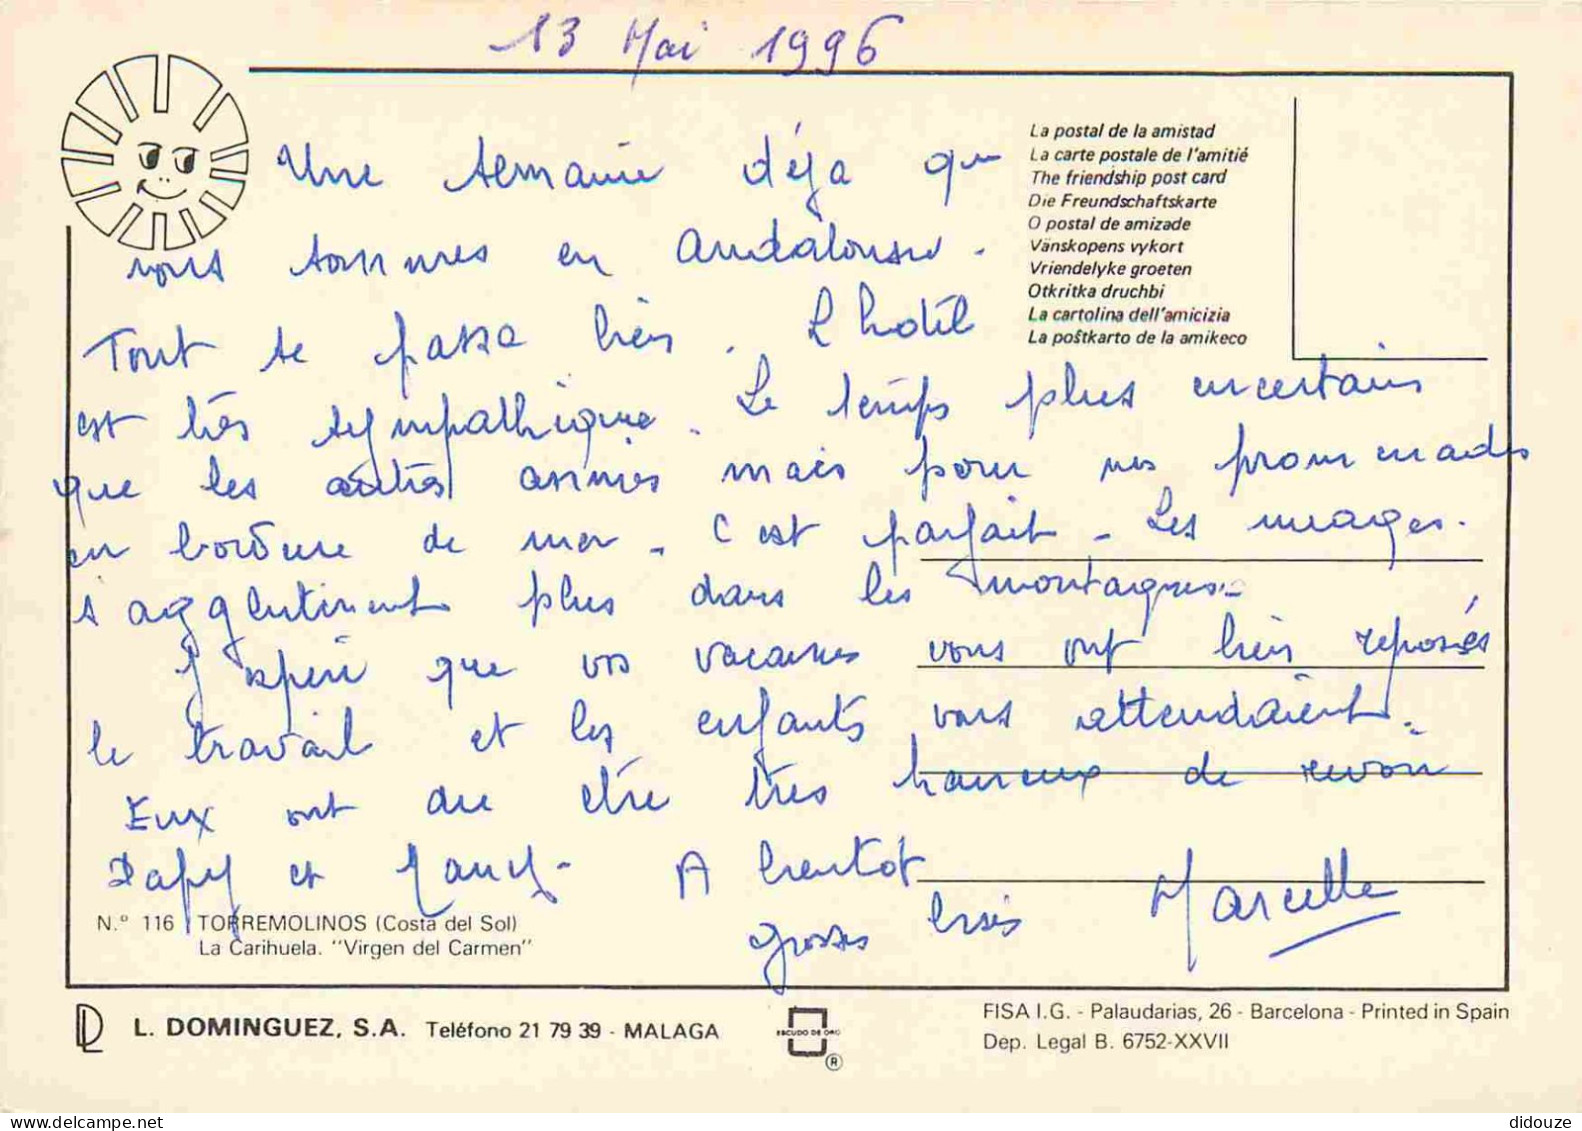 13 Mai 1996
La postal de la amistad
La carte postale de l'amitié
The friendship post card
Die Freundschaftskarte
O postal de amizade
Vänskopens vykort
Vriendelyke groeten
Otkritka druchbi
La cartolina dell'amicizia
La poŝtkarto de la amikeco
Une semaine déjà que
nous sommes en Andalousie.
Tout se passe bien. L'hotel
est très sympathique. Le temps plus incertain
que les autres années mais pour nos promenades
en bordure de mer. C'est parfait. Les nuages
s'agglutinent plus dans les montagnes.
J'espère que vos vacances vous ont bien reposés
le travail et les enfants vous attendaient.
Eux ont du être très heureux de revoir
Papy et Mamy. A bientôt
grosses bises Marcelle
N.° 116 TORREMOLINOS (Costa del Sol)
La Carihuela. "Virgen del Carmen"
L. DOMINGUEZ, S.A. Teléfono 21 79 39 - MALAGA
ESCUDO DE ORO
®
FISA I.G. - Palaudarias, 26 - Barcelona - Printed in Spain
Dep. Legal B. 6752-XXVII
didouze